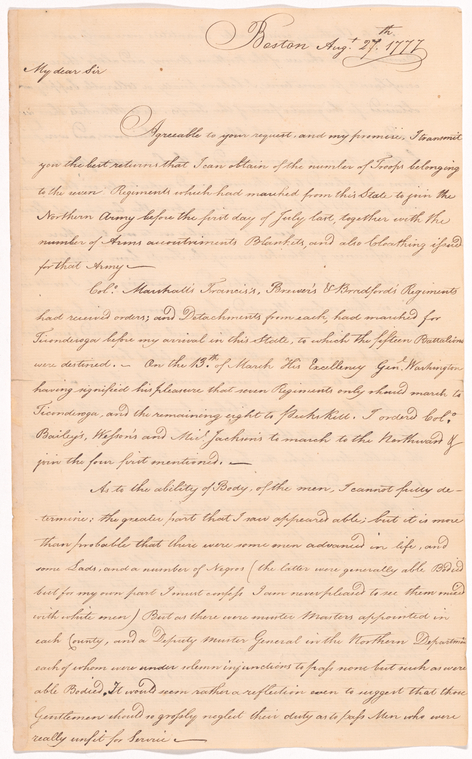 Boston Augt. 27th. 1777
My dear Sir
Agreeable to your request and my promise, I transmit
you the best returns that I can obtain of the number of Troops belonging
to the seven Regiments which had marched from this State to join the
Northern Army before the first day of July last, together with the
number of Arms accoutriments Blankets, and also Cloathing issued
for that Army —
Colo. Marshall's Francis's, Brewer's & Bradford's Regiments
had received orders; and Detachments from each, had marched for
Ticonderoga before my arrival in this State, to which the fifteen Battalions
were destined. — On the 13th. of March His Excellency Genl. Washington
having signified his pleasure that seven Regiments only should march to
Ticonderoga, and the remaining eight to Peekskill. I orderd Colo.
Bailey's, Wesson's and Jackson's to march to the Northward &
join the four first mentioned. —
As to the ability of Body, of the men, I cannot fully de-
-termine: the greater part that I saw appeared able; but it is more
than probable that there were some men advanced in life, and
some Lads, and a number of Negros (the latter were generally able Bodied
but for my own part I must confess I am never pleased to see them mixed
with white men) But as there were Muster Masters appointed in
each County, and a Deputy Muster General in the Northern Departmen
each of whom were under solemn injunctions to pass none but such as were
able Bodied, It would seem rather a reflection even to suggest that those
Gentlemen should so grossly neglect their duty as to pass Men who were
really unfit for Service —